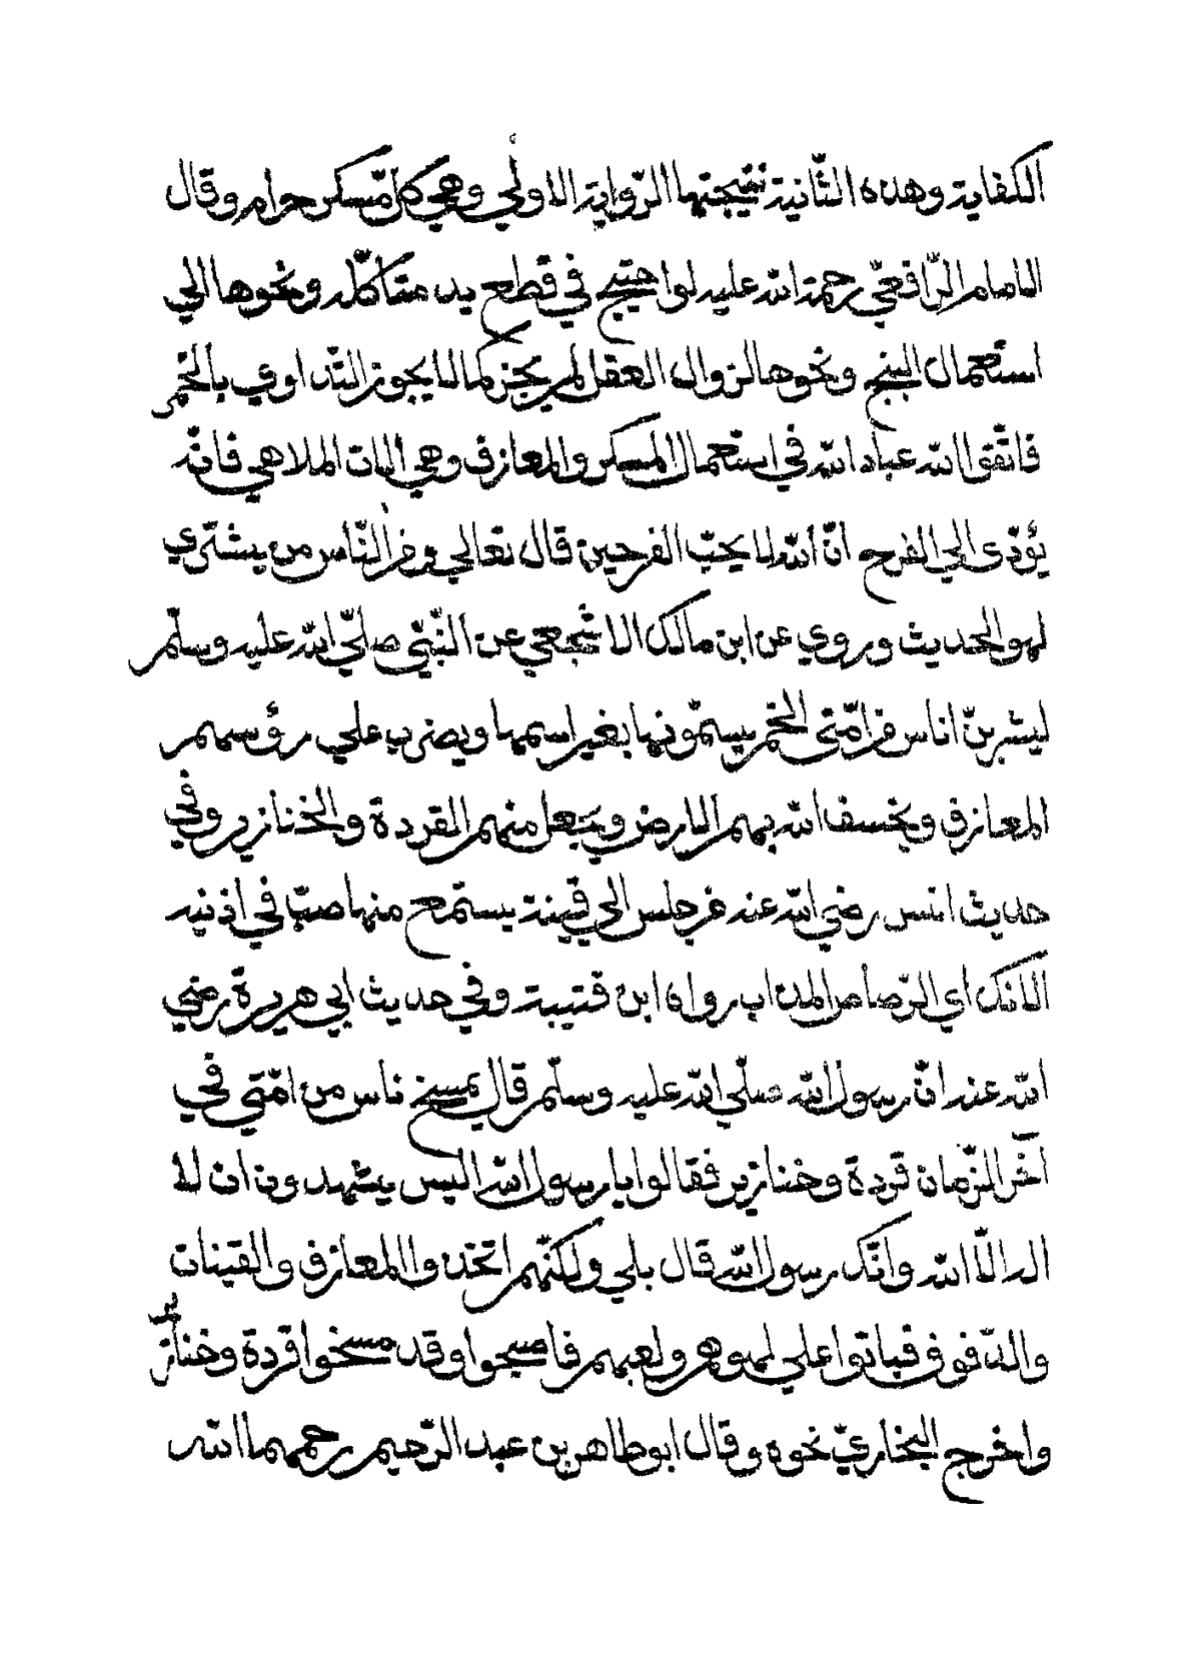 الكفاية وهذه الثّانية نتيجتها الرّواية الاولي وهي كلّ مّسكر حرام وقال
الامام الرّافعيّ رحمة الله عليه لو احتيج في قطع يد متاكّلة ونحوها الي
استعمال البنج ونحوها لزوال العقل لم يجز كما لا يجوز التّداوي بالخمر
فاتّقوا الله عباد الله في استعمال المسكر والمعازف وهي الات الملاهي فانّه
يؤدّى الي الفرح انّ الله لا يحبّ الفرحين قال تعالي ومن النّاس من يشتري
لهو الحديث وروي عن ابن مالك الاشجعي عن النّبيّ صلّي الله عليه وسلّم
ليشربنّ اناس من امّتى الخمر يسمّونها بغير اسمها ويضرب علي رؤسهم
المعازف ويخسف الله بهم الارض ويجعل منهم القردة والخنازير وفي
حديث انس رضي الله عنه من جلس الي قينة يستمع منها صبّ في اذنيه
الانك اي الرّصاص المذاب رواه ابن قتيبة وفي حديث ابي هريرة رضي
الله عنه انّ رسول الله صلّي الله عليه وسلّم قال يمسخ ناس من امّتي في
آخر الزّمان قردة وخنازير فقالوا يا رسول الله اليس يشهدون ان لا
اله الّا الله وانّك رسول الله قال بلي ولكنّهم اتخذوا المعازف والقينات
والدّفوف فباتوا علي لهوهم ولعبهم فاصبحوا وقد مسخوا قردة وخنازير
واخرج البخاريّ نحوه وقال ابو طاهر بن عبد الرّحيم رحمهما الله